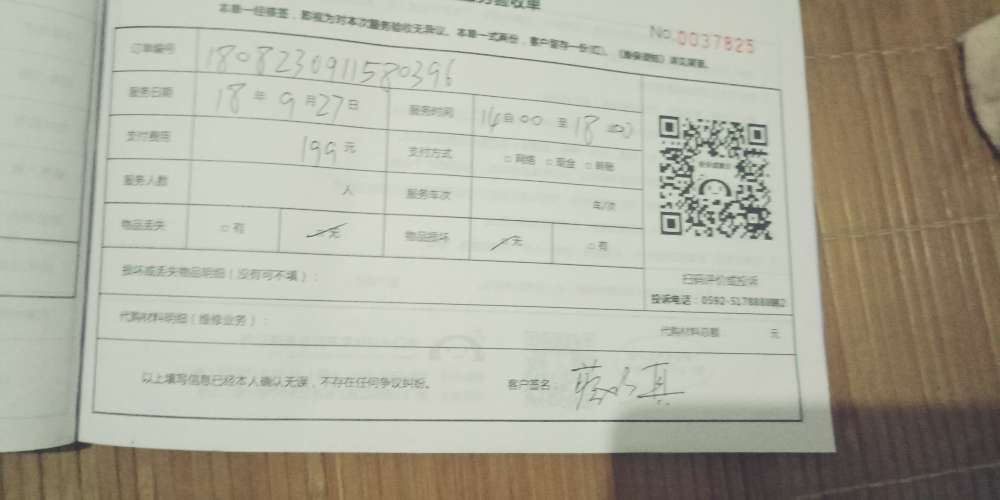 验收单
本单一经签签，即视为对本次服务验收无异议。本单一式两份，客户留存一份
No.0037825
订单编号 1808230911580396
服务日期 18年9月27日 服务时间 14自00至18:00
支付费用 199元 支付方式 □网络 □现金 □转账
服务人数 人 服务车次 车/次
物品丢失 □有 □无 物品损坏 □无 □有
损坏或丢失物品明细（没有可不填）：
扫码评价或投诉
投诉电话：0592-5178888
代购材料明细（维修业务）： 代购材料总额 元
以上填写信息已经本人确认无误，不存在任何争议纠纷。 客户签名：